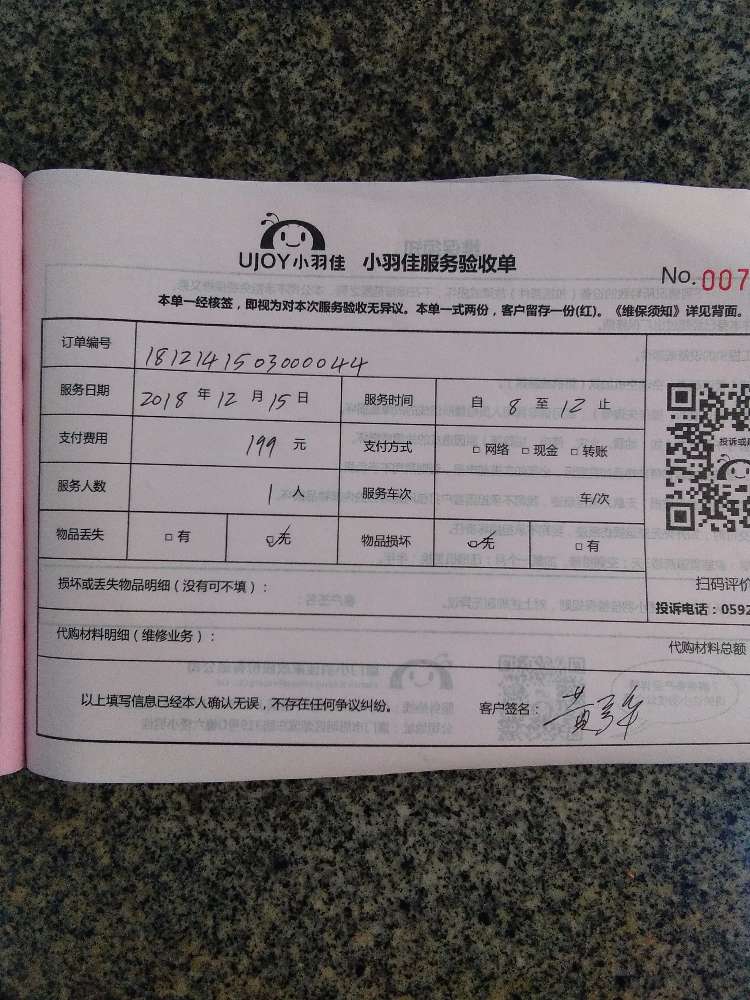 UJOY小羽佳 小羽佳服务验收单
No.007
本单一经核签，即视为对本次服务验收无异议。本单一式两份，客户留存一份(红)。《维保须知》详见背面。
订单编号 1812141503000044
服务日期 2018年12月15日 服务时间 自8至12止
支付费用 199元 支付方式 □网络 □现金 □转账
服务人数 1人 服务车次 车/次
物品丢失 □有 ☑无 物品损坏 ☑无 □有
投诉或
损坏或丢失物品明细（没有可不填）：
扫码评价
投诉电话：0592
代购材料明细（维修业务）：
代购材料总额
以上填写信息已经本人确认无误，不存在任何争议纠纷。 客户签名：